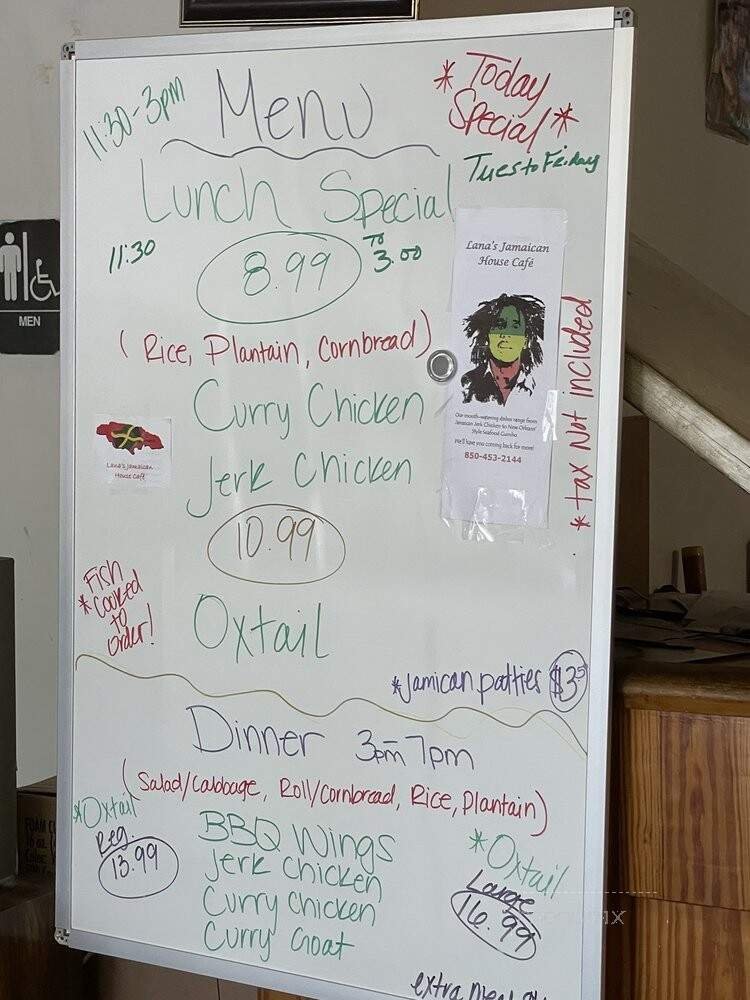 11:30-3pm
Menu
* Today
Special *
Tues to Friday
Lunch Special
11:30
8.99
TO
3.00
(Rice, Plantain, Cornbread)
Curry Chicken
Jerk Chicken
10.99
Oxtail
Lana's Jamaican
House Café
Our mouth-watering dishes range from
Jamaican Jerk Chicken to New Orleans'
Style Seafood Gumbo
We'll have you coming back for more!
850-453-2144
* tax Not included
Lana's Jamaican
House Café
MEN
Fish
* Cooked
to
order!
*Jamican patties $3
Dinner 3pm-7pm
(Salad/Cabbage, Roll/Cornbread, Rice, Plantain)
*Oxtail
Reg.
13.99
BBQ Wings
Jerk Chicken
Curry Chicken
Curry Goat
*Oxtail
Large
16.99
extra